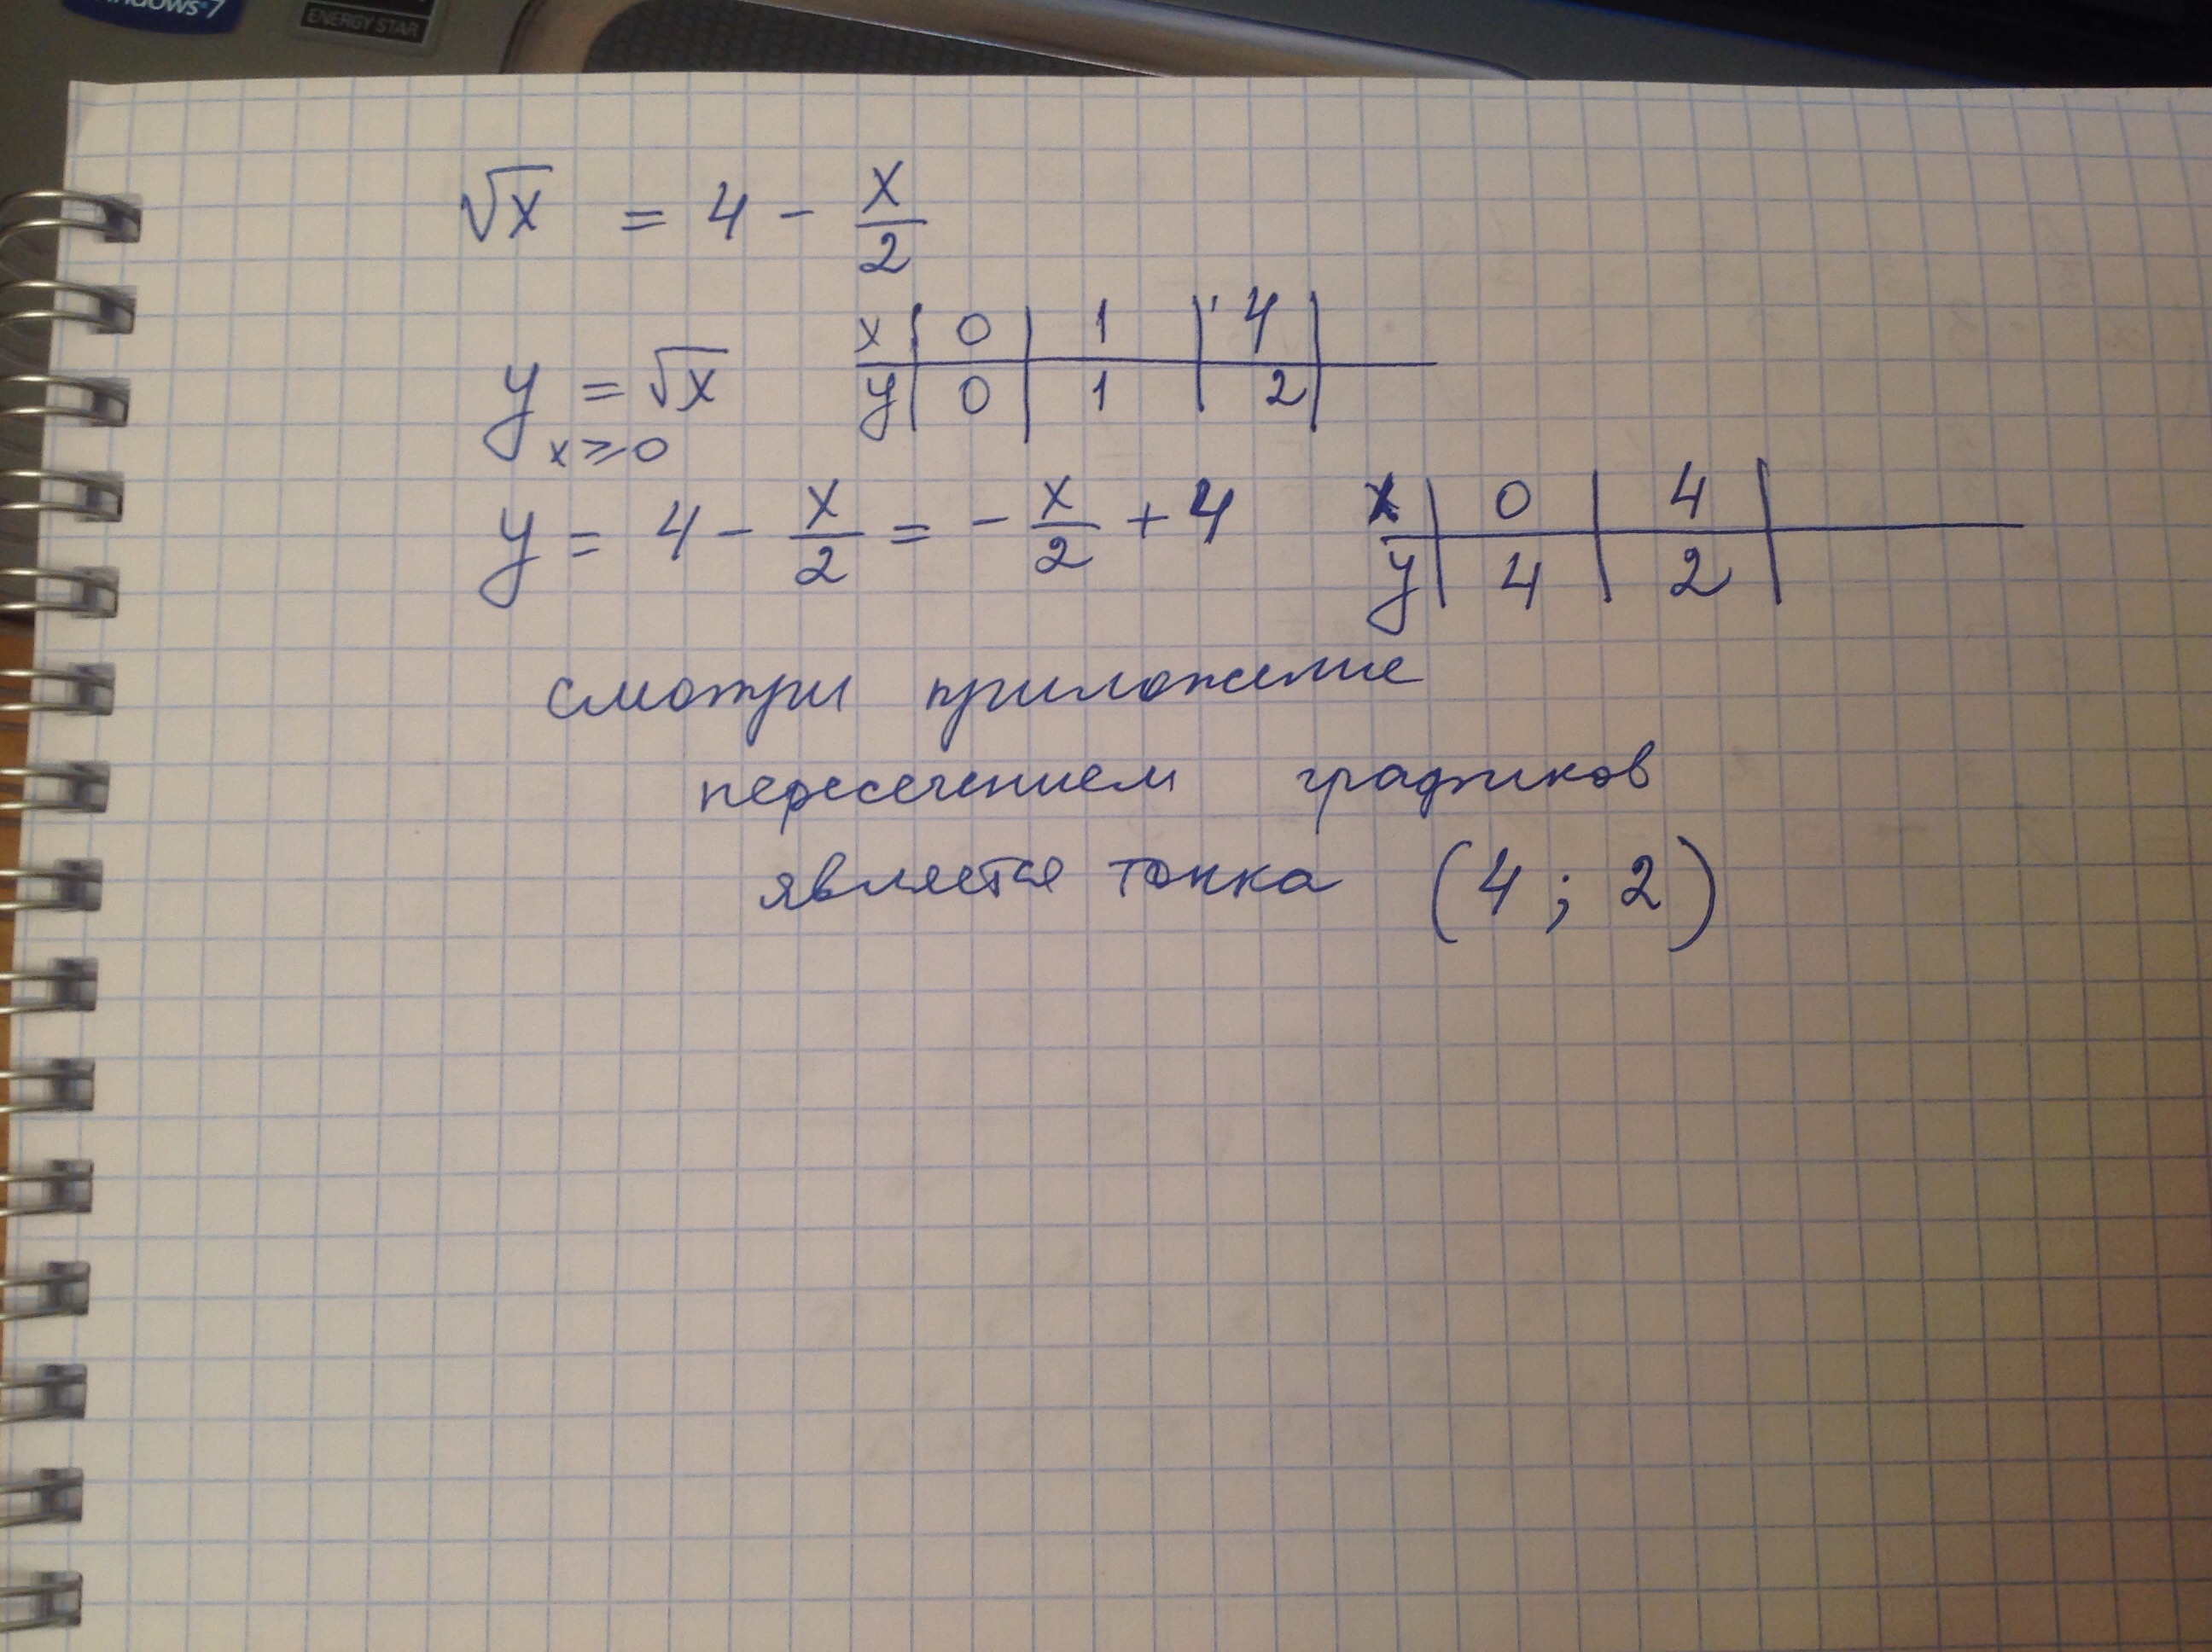 ndows 7
ENERGY STAR
√x = 4 - x/2
x | 0 | 1 | 4
y = √x
y | 0 | 1 | 2
x ⩾ 0
y = 4 - x/2 = - x/2 + 4
x | 0 | 4
y | 4 | 2
смотри приложение
пересечением графиков
является точка (4 ; 2)